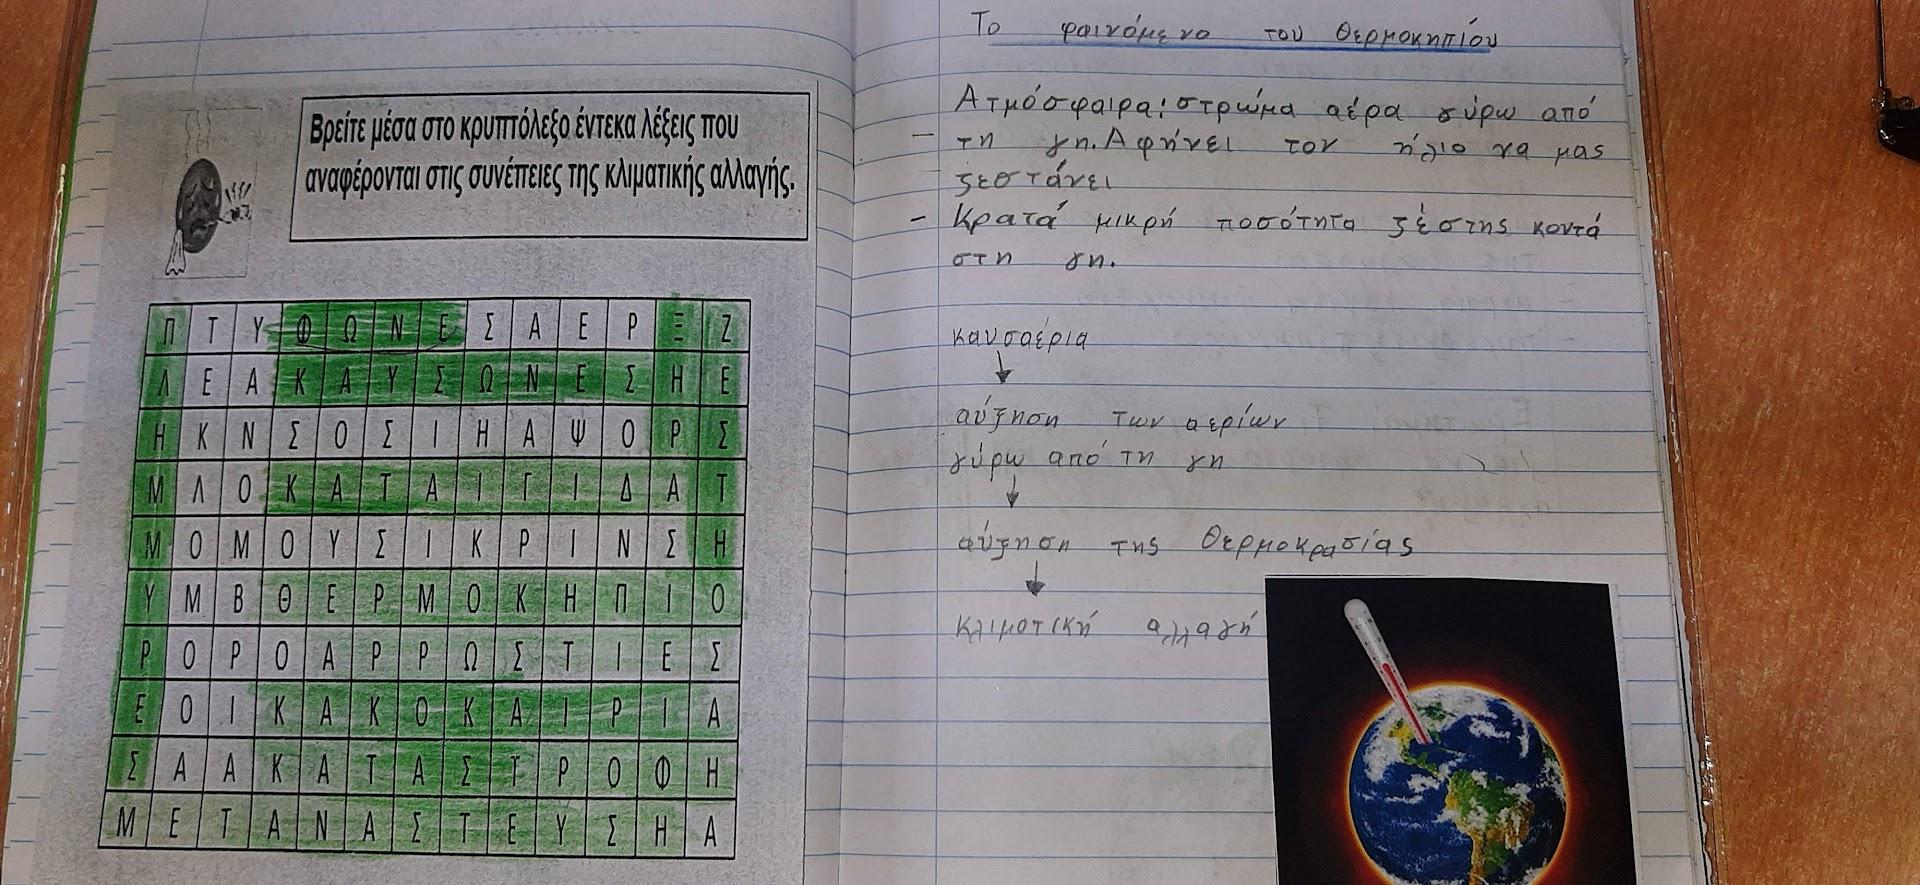 Βρείτε μέσα στο κρυπτόλεξο έντεκα λέξεις που
αναφέρονται στις συνέπειες της κλιματικής αλλαγής.
Π Τ Υ Φ Ω Ν Ε Σ Α Ε Ρ Ξ Ζ
Λ Ε Α Κ Α Υ Σ Ω Ν Ε Σ Η Ε
Η Κ Ν Σ Ο Σ Ι Η Α Ψ Ο Ρ Σ
Μ Λ Ο Κ Α Τ Α Ι Γ Ι Δ Α Τ
Μ Ο Μ Ο Υ Σ Ι Κ Ρ Ι Ν Σ Η
Υ Μ Β Θ Ε Ρ Μ Ο Κ Η Π Ι Ο
Ρ Ο Ρ Ο Α Ρ Ρ Ω Σ Τ Ι Ε Σ
Ε Ο Ι Κ Α Κ Ο Κ Α Ι Ρ Ι Α
Σ Α Α Κ Α Τ Α Σ Τ Ρ Ο Φ Η
Μ Ε Τ Α Ν Α Σ Τ Ε Υ Σ Η Α
Το φαινόμενο του Θερμοκηπίου
Ατμόσφαιρα: στρώμα αέρα γύρω από
– τη γη. Αφήνει τον ήλιο να μας
ζεστάνει
– Κρατά μικρή ποσότητα ζέστης κοντά
στη γη.
καυσαέρια
αύξηση των αερίων
γύρω από τη γη
αύξηση της Θερμοκρασίας
Κλιματική αλλαγή